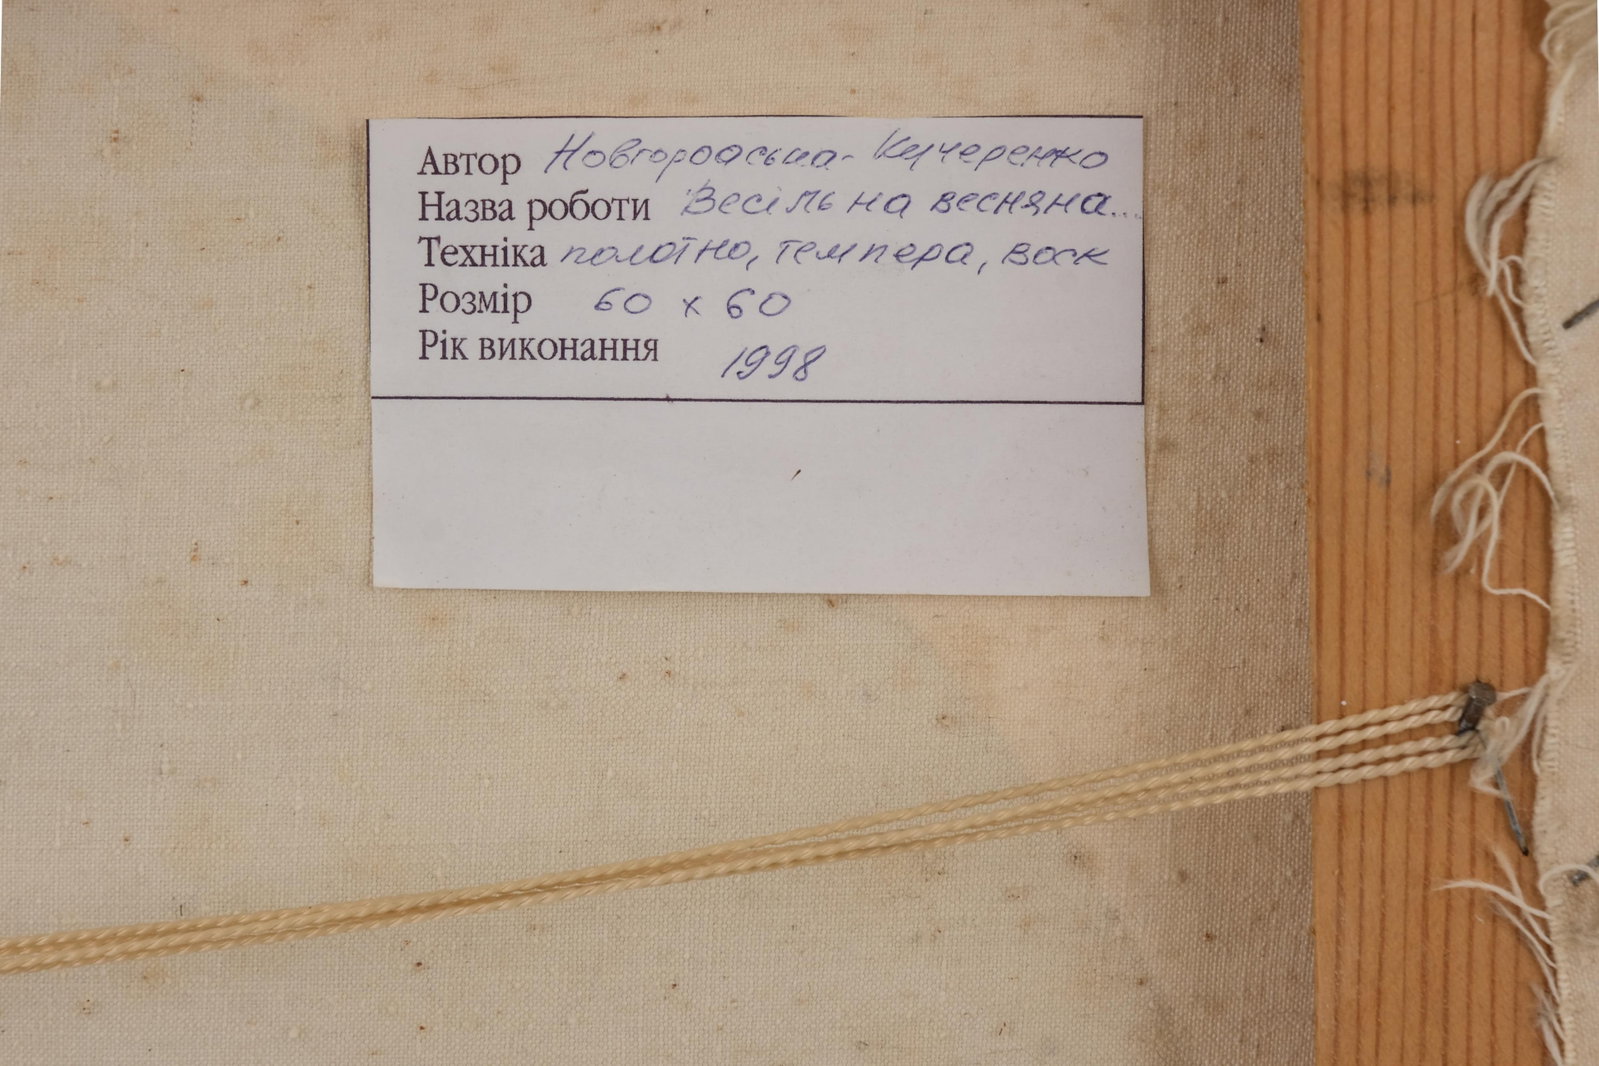 Автор Новгородська-Кучеренко
Назва роботи Весільна весняна...
Техніка полотно, темпера, воск
Розмір 60 х 60
Рік виконання 1998